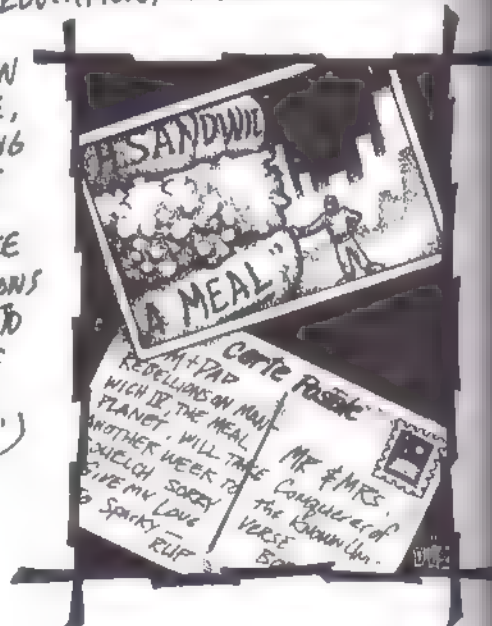 N
E,
NG
E
ONS
TO
H SANDWI
A MEAL"
M + DAD
REBELLIONS ON MAN
WICH IV, THE MEAL
PLANET, WILL TAKE
ANOTHER WEEK TO
SQUELCH SORRY
GIVE MY LOVE
TO Sparky —
RUF
Carte Postale
MR & MRS.
Conquerer of
the Known Uni-
VERSE